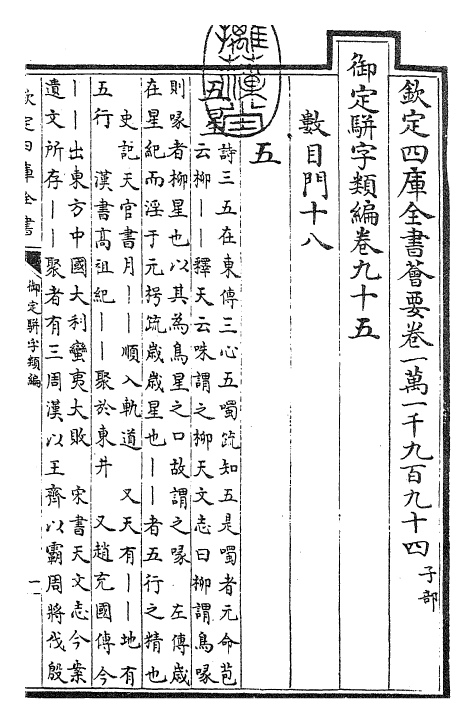 欽定四庫全書薈要卷一萬一千九百九十四 子部
御定駢字類編卷九十五
數目門十八
五
五星
詩三五在東傳三心五噣疏知五是噣者元命苞
云柳丨丨釋天云咮謂之柳天文志曰柳謂鳥喙
則喙者柳星也以其為鳥星之口故謂之喙 左傳歲
在星紀而淫于元枵疏歲歲星也丨丨者五行之精也
史記天官書月丨丨順入軌道 又天有丨丨地有
五行 漢書高祖紀丨丨聚於東井 又趙充國傳今
丨丨出東方中國大利蠻夷大敗 宋書天文志今案
遺文所存丨丨聚者有三周漢以王齊以霸周將伐殷
欽定四庫全書
御定駢字類編
一